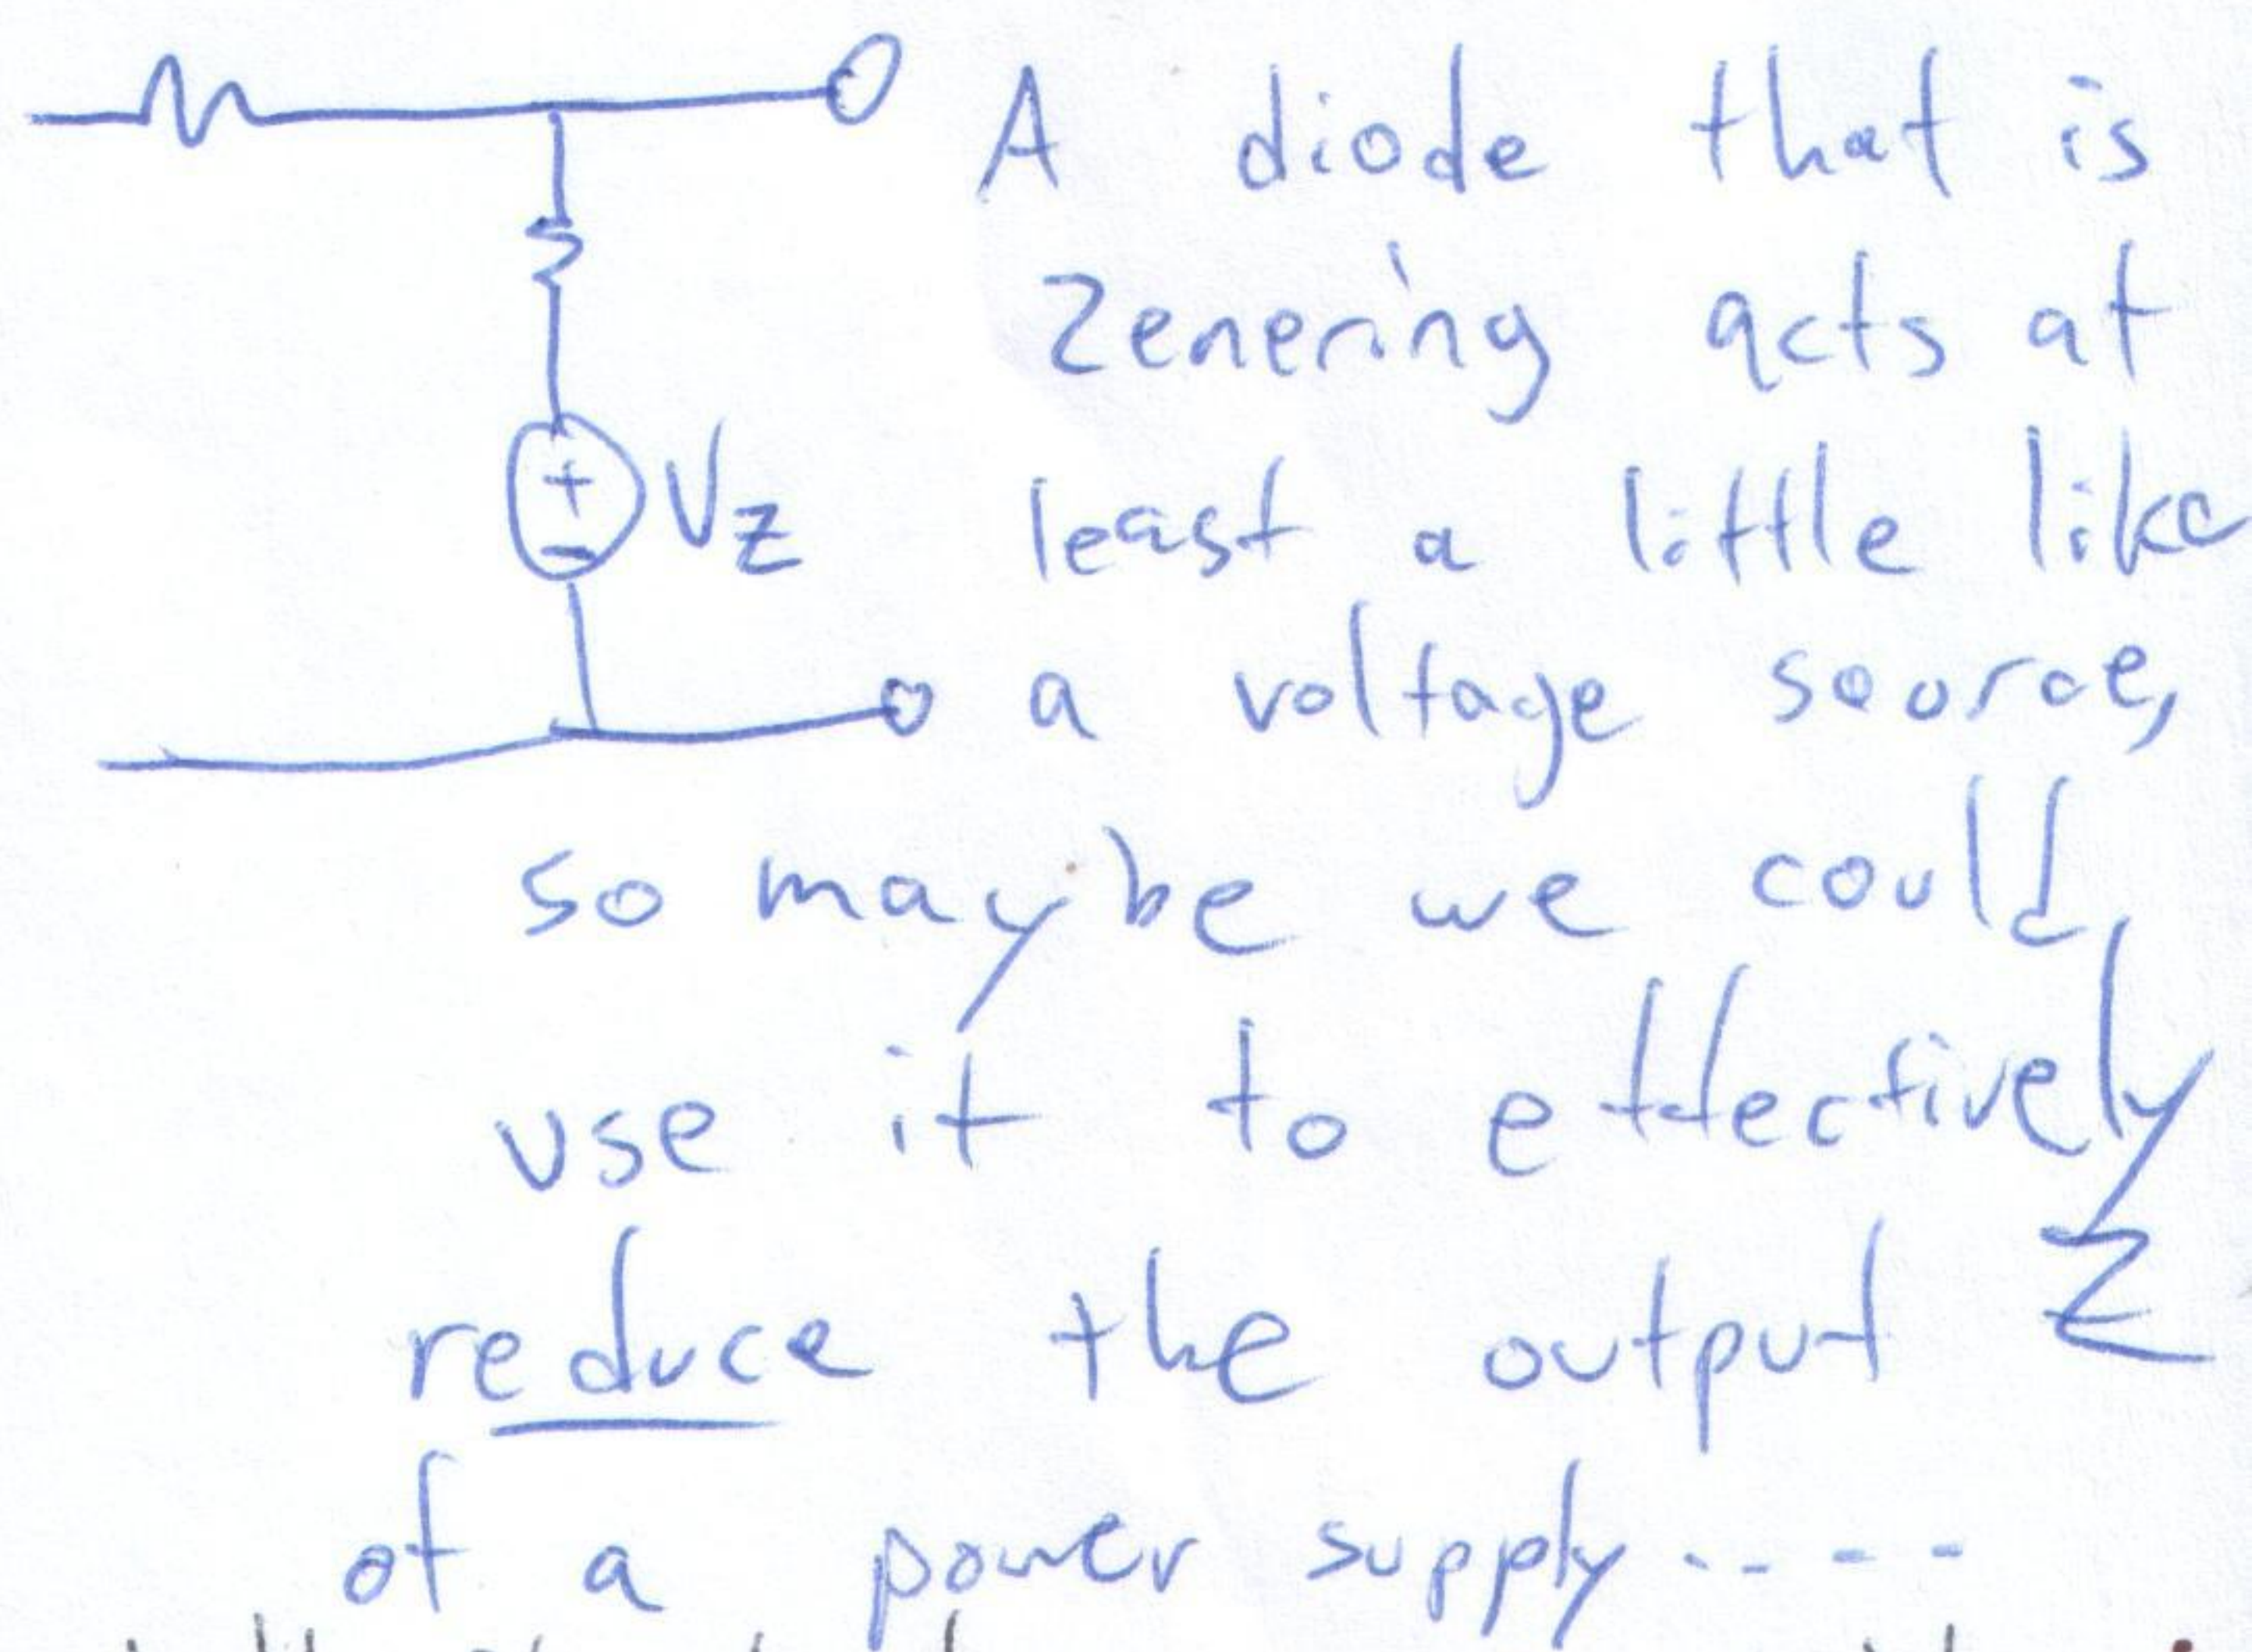 A diode that is
Zenering acts at
+
VZ
least a little like
-
a voltage source,
so maybe we could
use it to effectively
reduce the output Z
of a power supply....